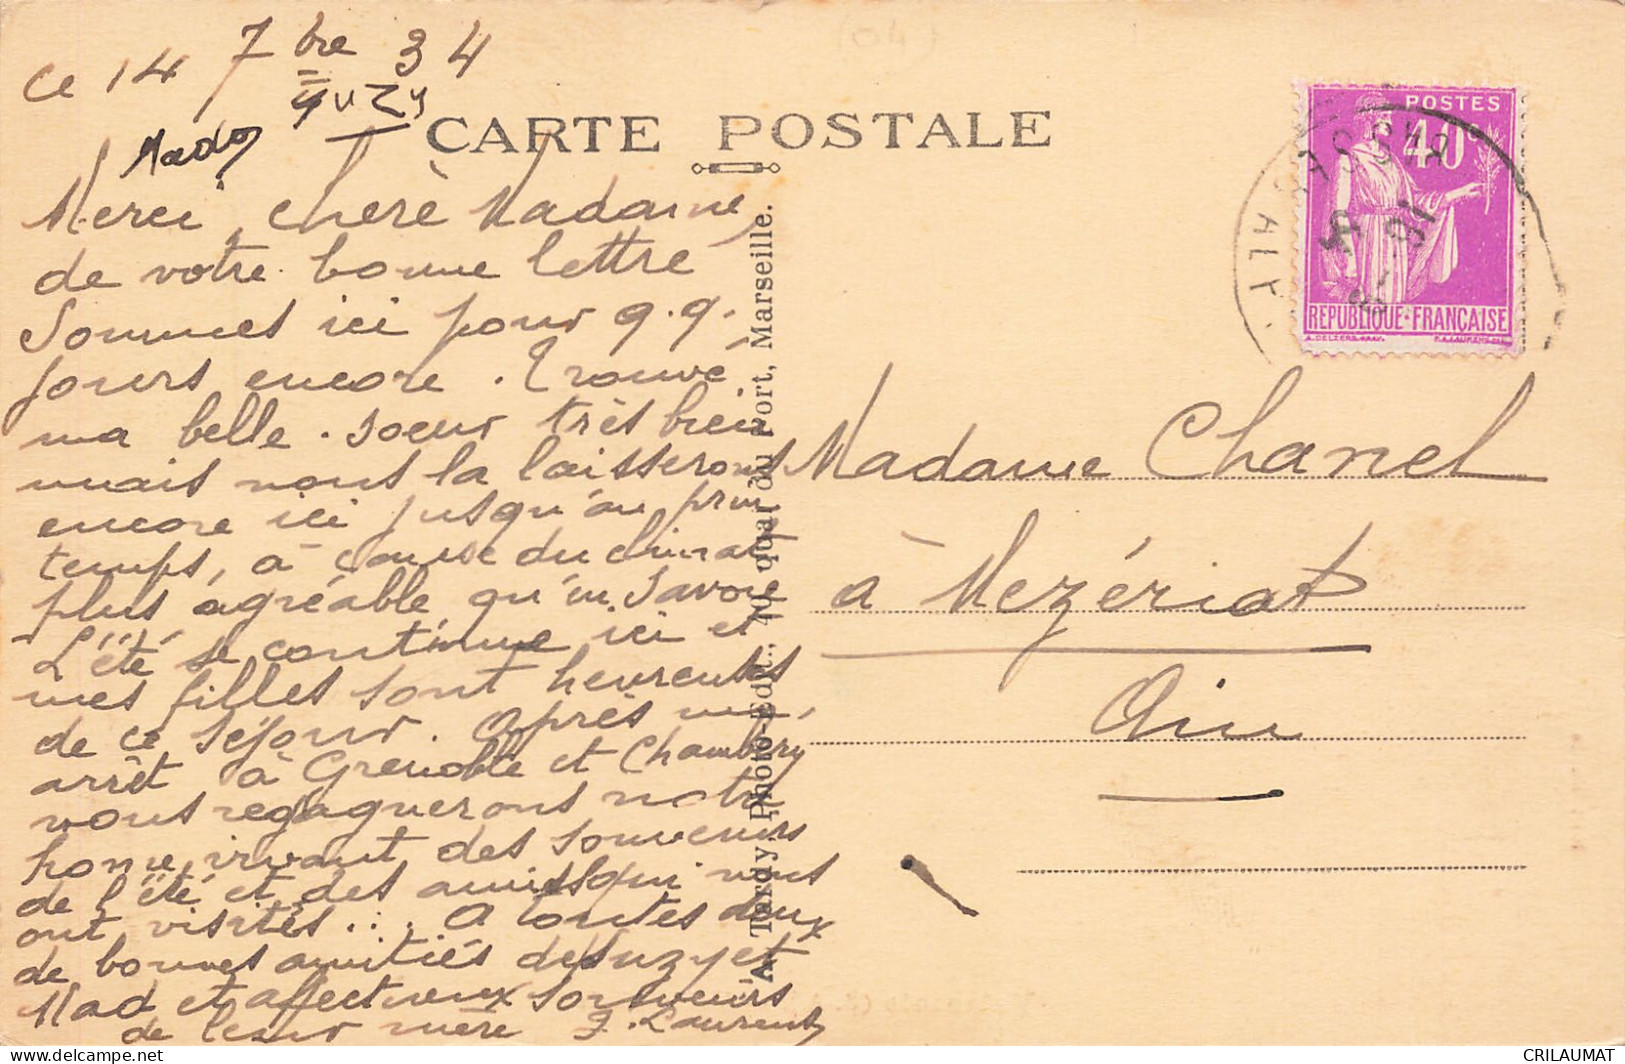 ce 14 7bre 34
Suzy
Mado
CARTE POSTALE
Merci, chère Madame,
de votre bonne lettre
Sommes ici pour q.q.
jours encore. Trouvé
ma belle-soeur très bien
mais nous la laisserons
encore ici jusqu'au prin
temps, à cause du climat
plus agréable qu'en Savoie
L'été se continue ici et
mes filles sont heureuses
de ce séjour. Après un
arrêt à Grenoble et Chambéry
nous regagnerons notre
home, vivant des souvenirs
de l'été et des amies qui nous
ont visités... A toutes deux
de bonnes amitiés de Suzy et
Mad et affectueux souvenirs
de leur mère J. Laurent
A. Tardy, Photo-Edit., 40, quai du Port, Marseille.
POSTES
40c
REPUBLIQUE·FRANÇAISE
Madame Chanel
à Mezériat
Ain
CRILAUMAT